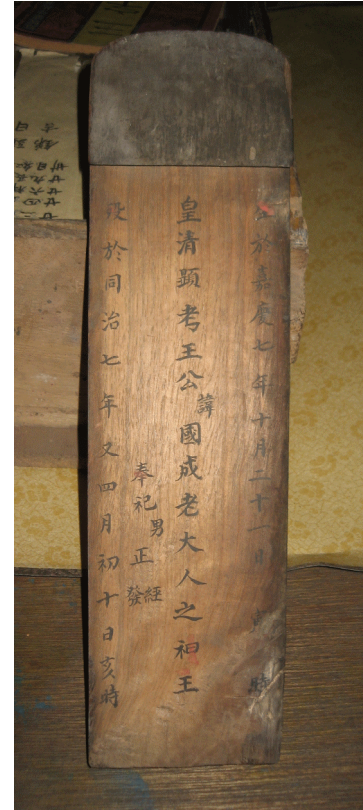 生於嘉慶七年十月二十一日時
皇清顕考王公諱國成老大人之神王
奉祀男正經
發
歿於同治七年又四月初十日亥時